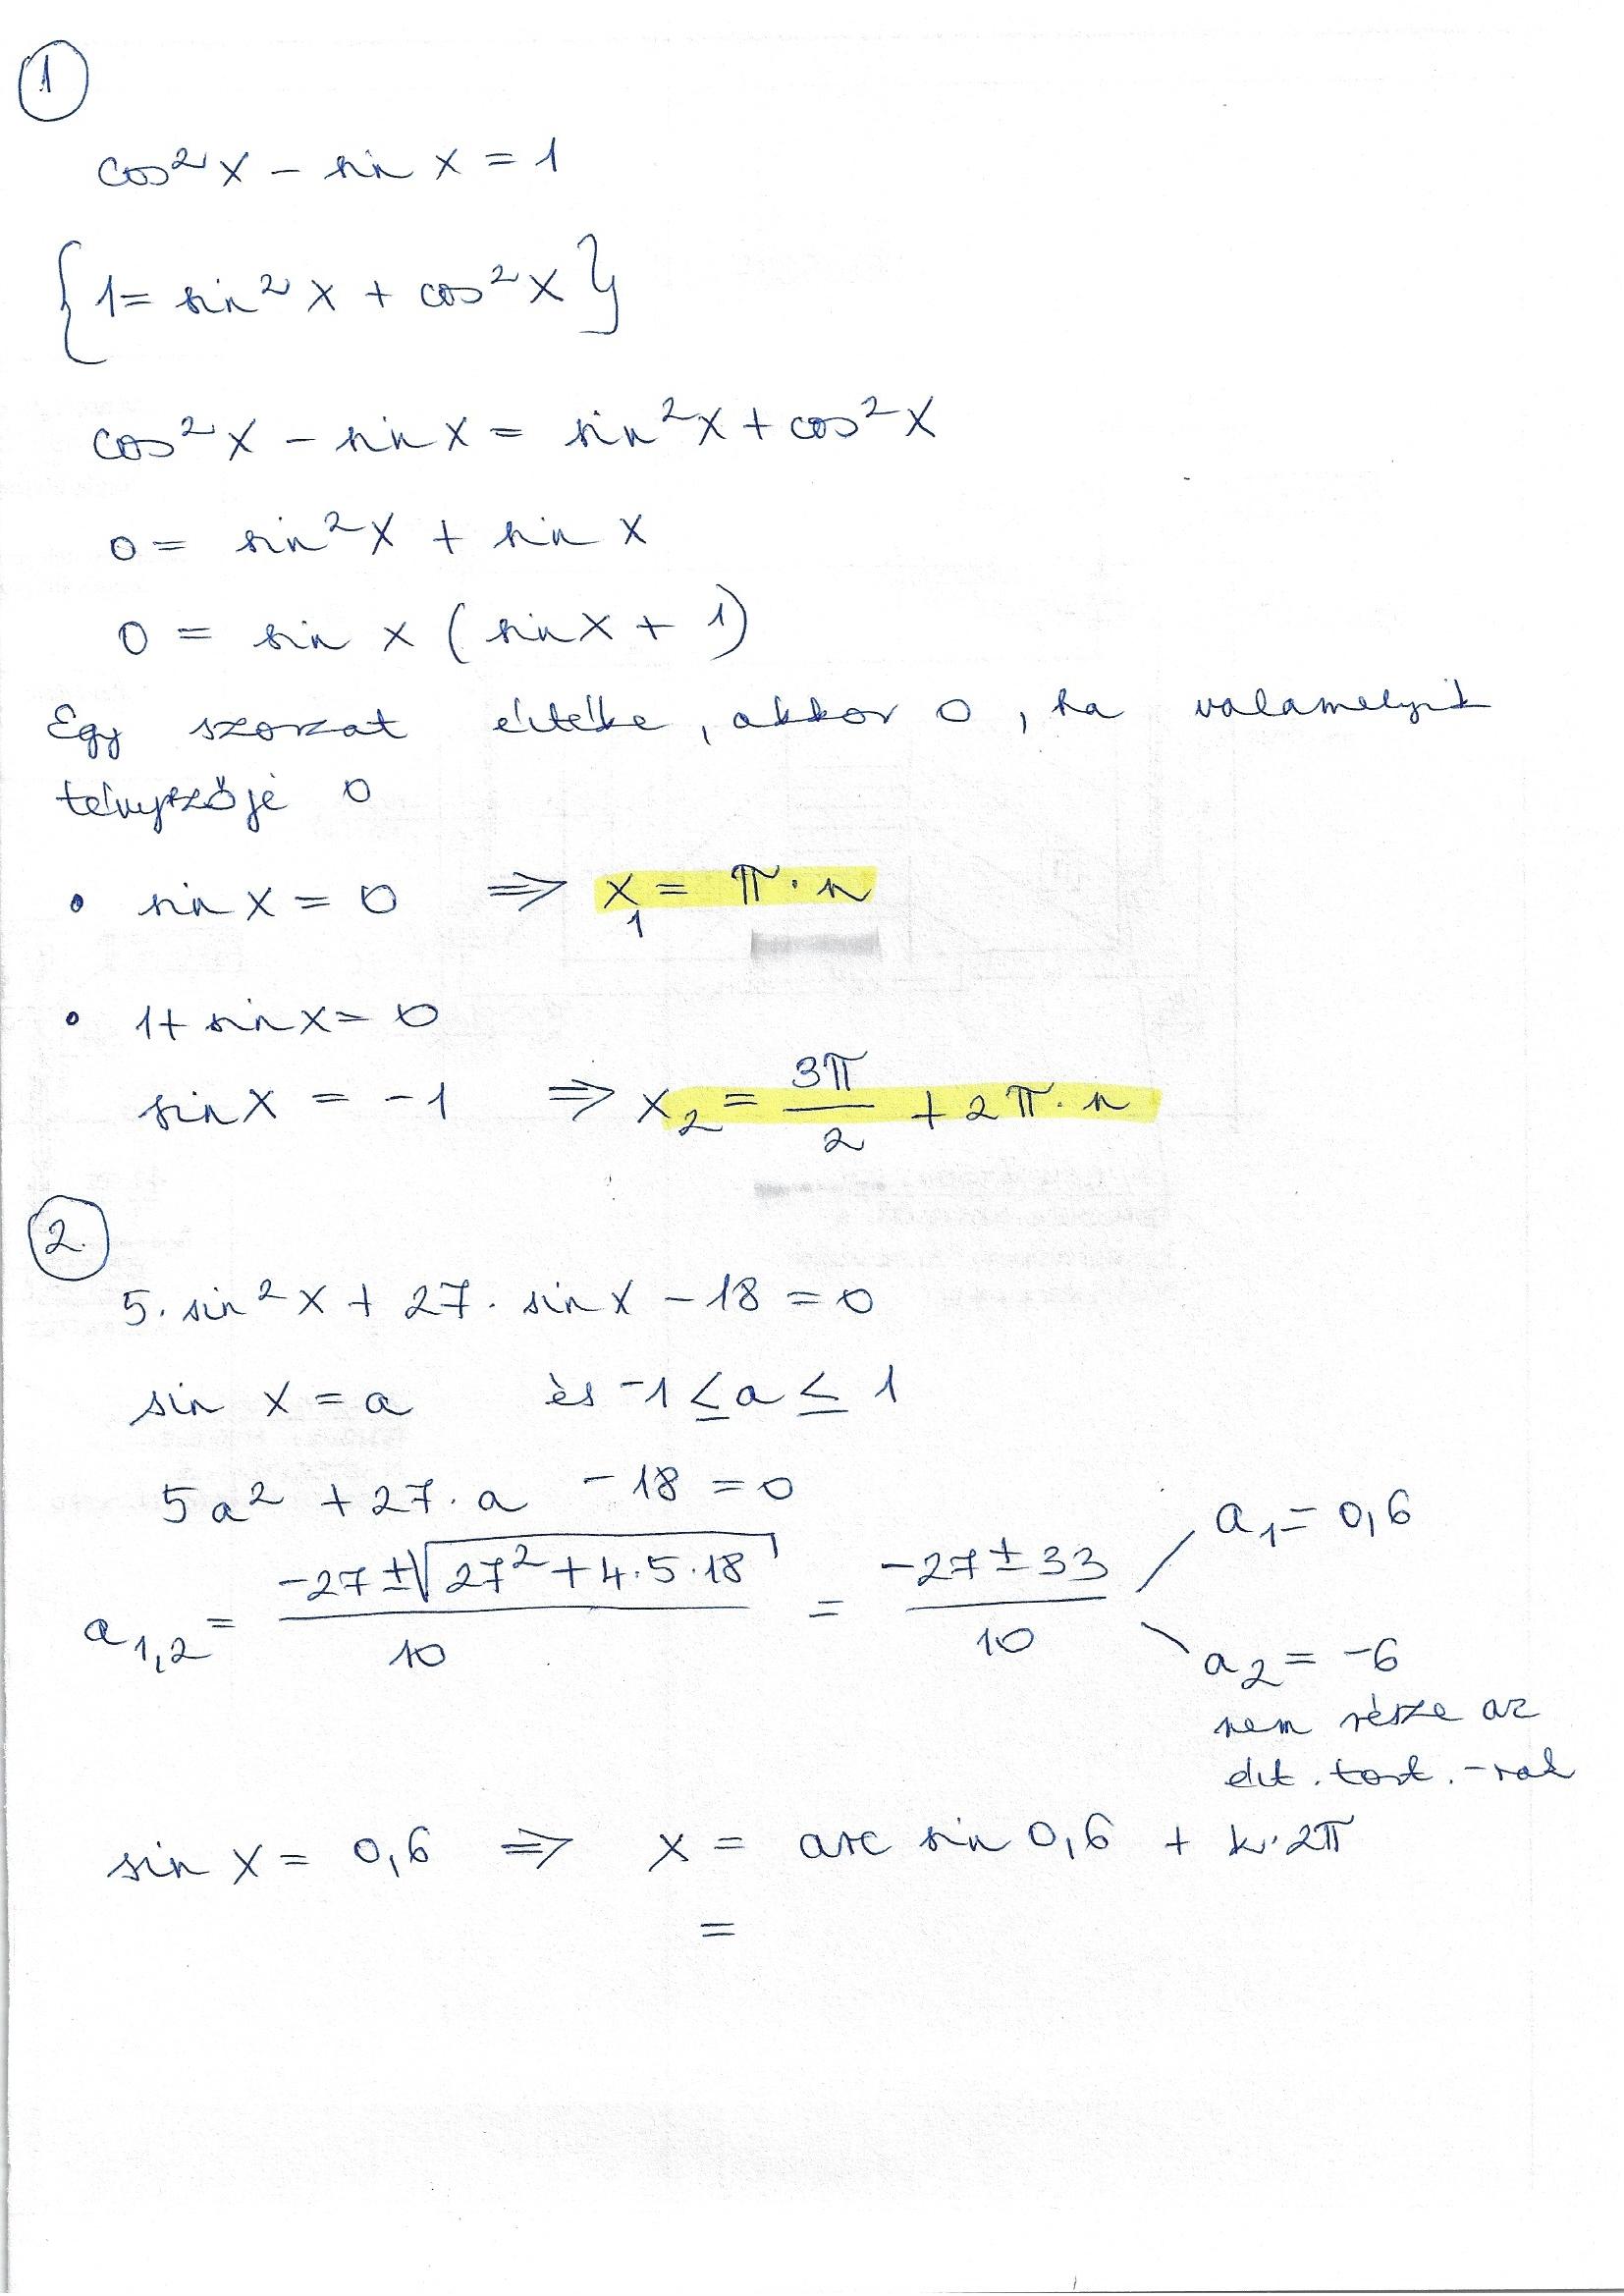 1
cos²x - sin x = 1
{1 = sin²x + cos²x}
cos²x - sin x = sin²x + cos²x
0 = sin²x + sin x
0 = sin x (sin x + 1)
Egy szorzat értéke, akkor 0, ha valamelyik
tényezője 0
• sin x = 0 ⇒ x₁ = π · n
• 1 + sin x = 0
sin x = -1 ⇒ x₂ = 3π/2 + 2π · n
2.
5 · sin²x + 27 · sin x - 18 = 0
sin x = a és -1 ≤ a ≤ 1
5a² + 27 · a - 18 = 0
a₁,₂ = (-27 ± √(27² + 4 · 5 · 18))/10 = (-27 ± 33)/10
a₁ = 0,6
a₂ = -6
nem része az
ért. tart. -nak
sin x = 0,6 ⇒ x = arc sin 0,6 + k · 2π
=